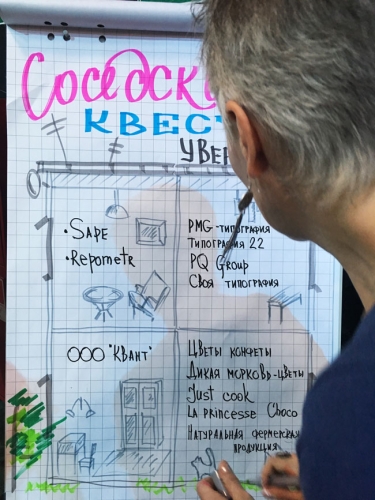 КВЕСТ
• Sape
• Repometr
PMG-типография
Типография 22
PQ Group
Своя типография
ООО "Квант"
Цветы конфеты
Дикая морковь-цветы
Just cook
La princesse Choco
Натуральная фермерская
продукция